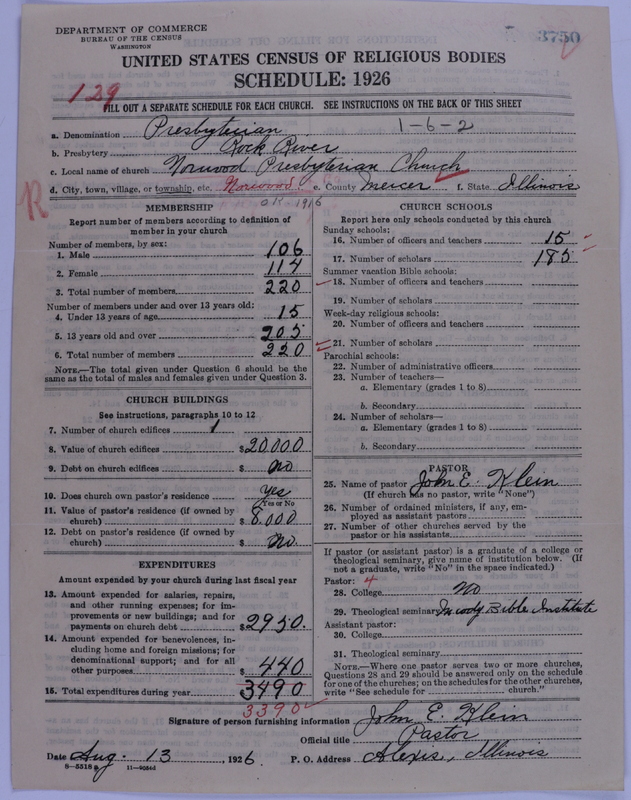 DEPARTMENT OF COMMERCE
BUREAU OF THE CENSUS
WASHINGTON
3750
UNITED STATES CENSUS OF RELIGIOUS BODIES
SCHEDULE: 1926
129
FILL OUT A SEPARATE SCHEDULE FOR EACH CHURCH. SEE INSTRUCTIONS ON THE BACK OF THIS SHEET
a. Denomination Presbyterian 1-6-2
b. Presbytery Rock River
c. Local name of church Norwood Presbyterian Church
d. City, town, village, or township, etc. Norwood e. County Mercer f. State Illinois
R
OK 1916
MEMBERSHIP
Report number of members according to definition of
member in your church
Number of members, by sex:
1. Male 106
2. Female 114
3. Total number of members 220
Number of members under and over 13 years old:
4. Under 13 years of age 15
5. 13 years old and over 205
6. Total number of members 220
NOTE.—The total given under Question 6 should be the
same as the total of males and females given under Question 3.
CHURCH BUILDINGS
See instructions, paragraphs 10 to 12
7. Number of church edifices 1
8. Value of church edifices $20000
9. Debt on church edifices $ no
10. Does church own pastor's residence Yes
Yes or No
11. Value of pastor's residence (if owned by
church) $8,000
12. Debt on pastor's residence (if owned by
church) $ no.
EXPENDITURES
Amount expended by your church during last fiscal year
13. Amount expended for salaries, repairs,
and other running expenses; for im-
provements or new buildings; and for
payments on church debt $2950.
14. Amount expended for benevolences, in-
cluding home and foreign missions; for
denominational support; and for all
other purposes $440
15. Total expenditures during year 3490
3390
CHURCH SCHOOLS
Report here only schools conducted by this church
Sunday schools:
16. Number of officers and teachers 15
17. Number of scholars 185
Summer vacation Bible schools:
18. Number of officers and teachers
19. Number of scholars
Week-day religious schools:
20. Number of officers and teachers
21. Number of scholars
Parochial schools:
22. Number of administrative officers
23. Number of teachers—
a. Elementary (grades 1 to 8)
b. Secondary
24. Number of scholars—
a. Elementary (grades 1 to 8)
b. Secondary
PASTOR
25. Name of pastor John E. Klein
(If church has no pastor, write "None")
26. Number of ordained ministers, if any, em-
ployed as assistant pastors
27. Number of other churches served by the
pastor or his assistants
If pastor (or assistant pastor) is a graduate of a college or
theological seminary, give name of institution below. (If
not a graduate, write "No" in the space indicated.)
Pastor: 4
28. College No
29. Theological seminary Moody Bible Institute
Assistant pastor:
30. College
31. Theological seminary
NOTE.—Where one pastor serves two or more churches,
Questions 28 and 29 should be answered only on the schedule
for one of the churches; on the schedules for the other churches,
write "See schedule for church."
Signature of person furnishing information John E. Klein
Official title Pastor
Date Aug. 13, 1926 P. O. Address Alexis, Illinois